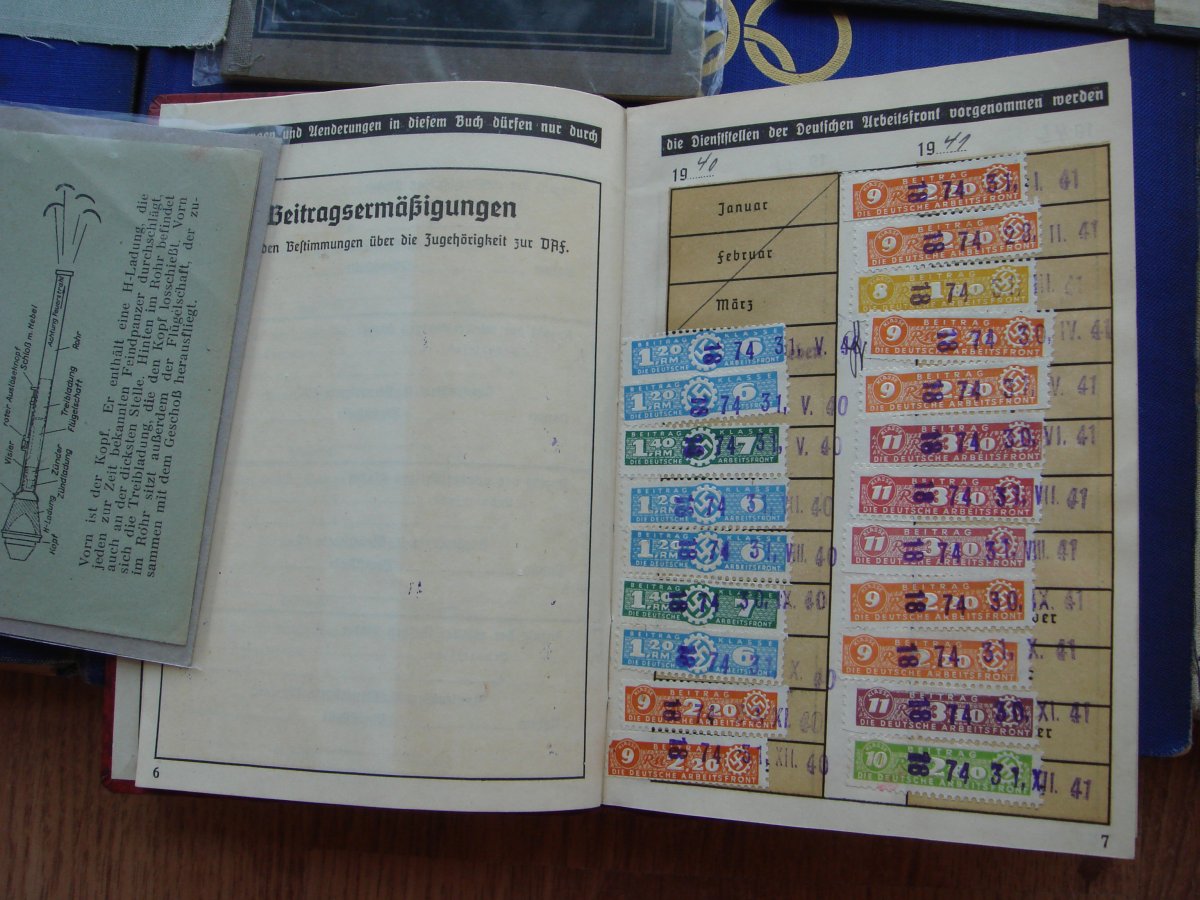 und Aenderungen in diesem Buch dürfen nur durch
Beitragsermäßigungen
den Bestimmungen über die Zugehörigkeit zur DAF.
6
die Dienststellen der Deutschen Arbeitsfront vorgenommen werden
19 40
19 41
Januar
Februar
März
BEITRAG KLASSE
1.20 RM 6
DIE DEUTSCHE ARBEITSFRONT
18 74 31. V. 40
BEITRAG KLASSE
1.20 RM 6
DIE DEUTSCHE ARBEITSFRONT
18 74 31. V. 40
BEITRAG KLASSE
1.40 RM 7
DIE DEUTSCHE ARBEITSFRONT
18 74 31. V. 40
BEITRAG KLASSE
1.20 RM 6
DIE DEUTSCHE ARBEITSFRONT
18 74 31. VII. 40
BEITRAG KLASSE
1.20 RM 6
DIE DEUTSCHE ARBEITSFRONT
18 74 31. VIII. 40
BEITRAG KLASSE
1.40 RM 7
DIE DEUTSCHE ARBEITSFRONT
18 74 30. IX. 40
BEITRAG KLASSE
1.20 RM 6
DIE DEUTSCHE ARBEITSFRONT
18 74 31. X. 40
KLASSE 9 BEITRAG
2.20
DIE DEUTSCHE ARBEITSFRONT
18 74 XI. 40
KLASSE 9 BEITRAG
RM 2.20
DIE DEUTSCHE ARBEITSFRONT
18 74 31. XII. 40
KLASSE 9 BEITRAG
RM 2.20
DIE DEUTSCHE ARBEITSFRONT
18 74 31. I. 41
KLASSE 9 BEITRAG
RM 2.20
DIE DEUTSCHE ARBEITSFRONT
18 74 28. II. 41
8 BEITRAG
DIE DEUTSCHE ARBEITSFRONT
18 74 III. 41
KLASSE 9 BEITRAG
RM 2.20
DIE DEUTSCHE ARBEITSFRONT
18 74 30. IV. 41
KLASSE 9 BEITRAG
RM 2.20
DIE DEUTSCHE ARBEITSFRONT
18 74 31. V. 41
KLASSE 11 BEITRAG
RM 3.40
DIE DEUTSCHE ARBEITSFRONT
18 74 30. VI. 41
KLASSE 11 BEITRAG
RM 3.40
DIE DEUTSCHE ARBEITSFRONT
18 74 31. VII. 41
KLASSE 11 BEITRAG
RM 3.40
DIE DEUTSCHE ARBEITSFRONT
18 74 31. VIII. 41
KLASSE 9 BEITRAG
RM 2.20
DIE DEUTSCHE ARBEITSFRONT
18 74 30. IX. 41
KLASSE 9 BEITRAG
RM 2.20
DIE DEUTSCHE ARBEITSFRONT
18 74 31. X. 41
KLASSE 11 BEITRAG
RM 3.40
DIE DEUTSCHE ARBEITSFRONT
18 74 30. XI. 41
KLASSE 10 BEITRAG
RM 2.80
DIE DEUTSCHE ARBEITSFRONT
18 74 31. XII. 41
7
Visier
roter Auslöseknopf
Schloß m. Hebel
Achtung Feuerstrahl
Rohr
Treibladung
Flügelschaft
Zünder
Zündladung
H-Ladung
Kopf
Vorn ist der Kopf. Er enthält eine H-Ladung, die
jeden zur Zeit bekannten Feindpanzer durchschlägt,
auch an der dicksten Stelle. Hinten im Rohr befindet
sich die Treibladung, die den Kopf losschießt. Vorn
im Rohr sitzt außerdem der Flügelschaft, der zu-
sammen mit dem Geschoß herausfliegt.